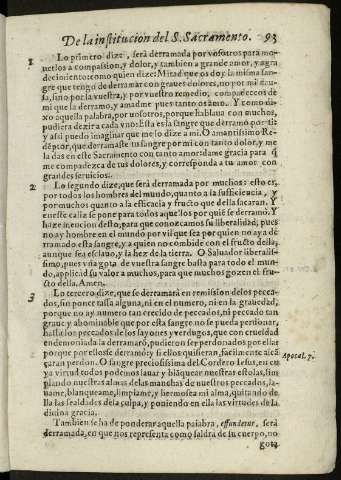 De la institucion del S. Sacramento. 93
1 Lo primero dize, serà derramada por vosotros para mo-
uerlos a compassion, y dolor, y tambien a grande amor, y agra
decimiento: como quien dize: Mirad que os doy la misma san-
gre que tengo de derramar con graues dolores, no por mi cau-
sa, sino por la vuestra, y por vuestro remedio; compadeceos de
mi que la derramo, y amadme pues tanto os amo. Y como di-
xo aquella palabra, por vosotros, porque hablaua con muchos,
pudiera dezir a cada vno: Esta es la sangre que derramo por ti:
y assi puedo imaginar que me lo dize a mi. O amantissimo Re-
dẽptor, que derramaste tu sangre por mi con tanto dolor, y me
la das en este Sacramento con tanto amor, dame gracia para q̃
me compadezca de tus dolores, y corresponda a tu amor con
grandes seruicios.
2 Lo segundo dize, que serà derramada por muchos: esto es,
por todos los hombres del mundo, quanto a la suficiencia, y
por muchos quanto a la eficacia y fructo que della sacaran. Y
en este caliz se pone para todos aquellos por quiẽ se derramó. Y
haze mencion desto, para que conozcamos su liberalidad, pues
no ay hombre en el mundo por vil que sea por quien no aya de
rramado esta sangre, y a quien no combide con el fructo della,
aunque sea esclauo, y la hez de la tierra. O Saluador liberalis-
simo, pues vna gota de vuestra sangre basta para todo el mun-
do, aplicad su valor a muchos, para que muchos gozen el fru-
cto della. Amen.
3 Lo tercero dize, que se derramarà en remission de los pecca-
dos, sin poner tassa alguna, ni en el numero, ni en la grauedad,
porque no ay numero tan crecido de peccados, ni peccado tan
graue y abominable que por esta sangre no se pueda perdonar,
hasta los peccados de los sayones y verdugos, que con crueldad
endemoniada la derramarõ, pudieron ser perdonados por ella:
porque por ellos se derramò: y si ellos quisieran, facilmente alcã
çaran perdon. O sangre preciosissima del Cordero Iesus, en cu
ya virtud todos podemos lauar y blãquear nuestras estolas, lim
piando nuestras almas de las manchas de nuestros peccados, la-
uame, blanqueame, limpiame, y hermosea mi alma, quitando de
lla las fealdades de la culpa, y poniendo en ella las virtudes de la
diuina gracia.
Apocal. 7.
Tambien se ha de ponderar aquella palabra, effundetur, serà
derramada, en que nos representa como saldra de su cuerpo, no
gota